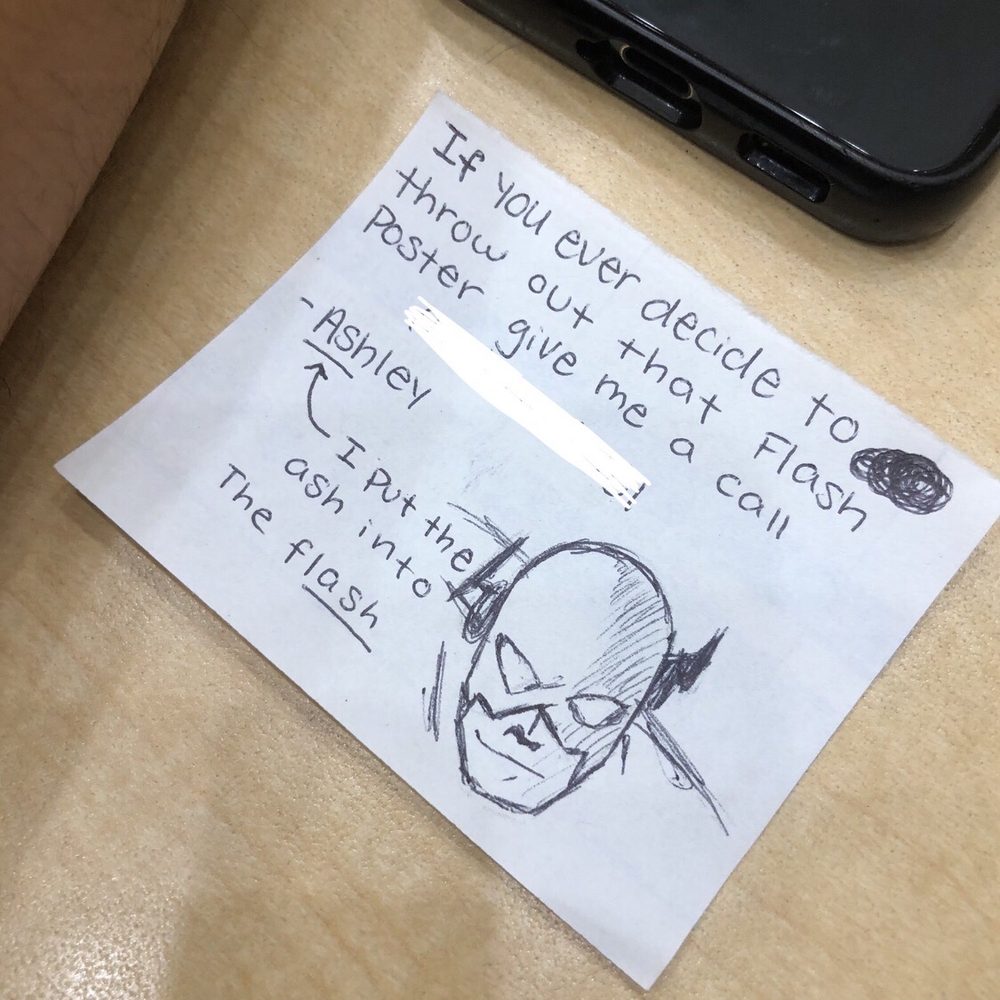 If you ever decide to
throw out that Flash
Poster give me a call
-Ashley
I Put the
ash into
The flash